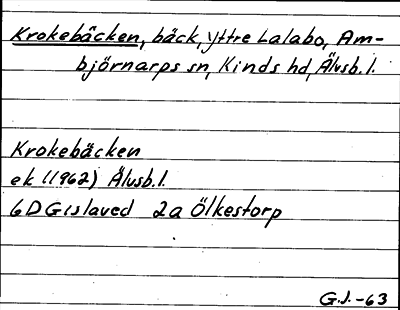 Krokebäcken, bäck, Yttre Lalabo, Am-
björnarps sn, Kinds hd, Älvsb. l.
Krokebäcken
ek (1962) Älvsb. l.
6D Gislaved 2a Ölkestorp
G.J.-63